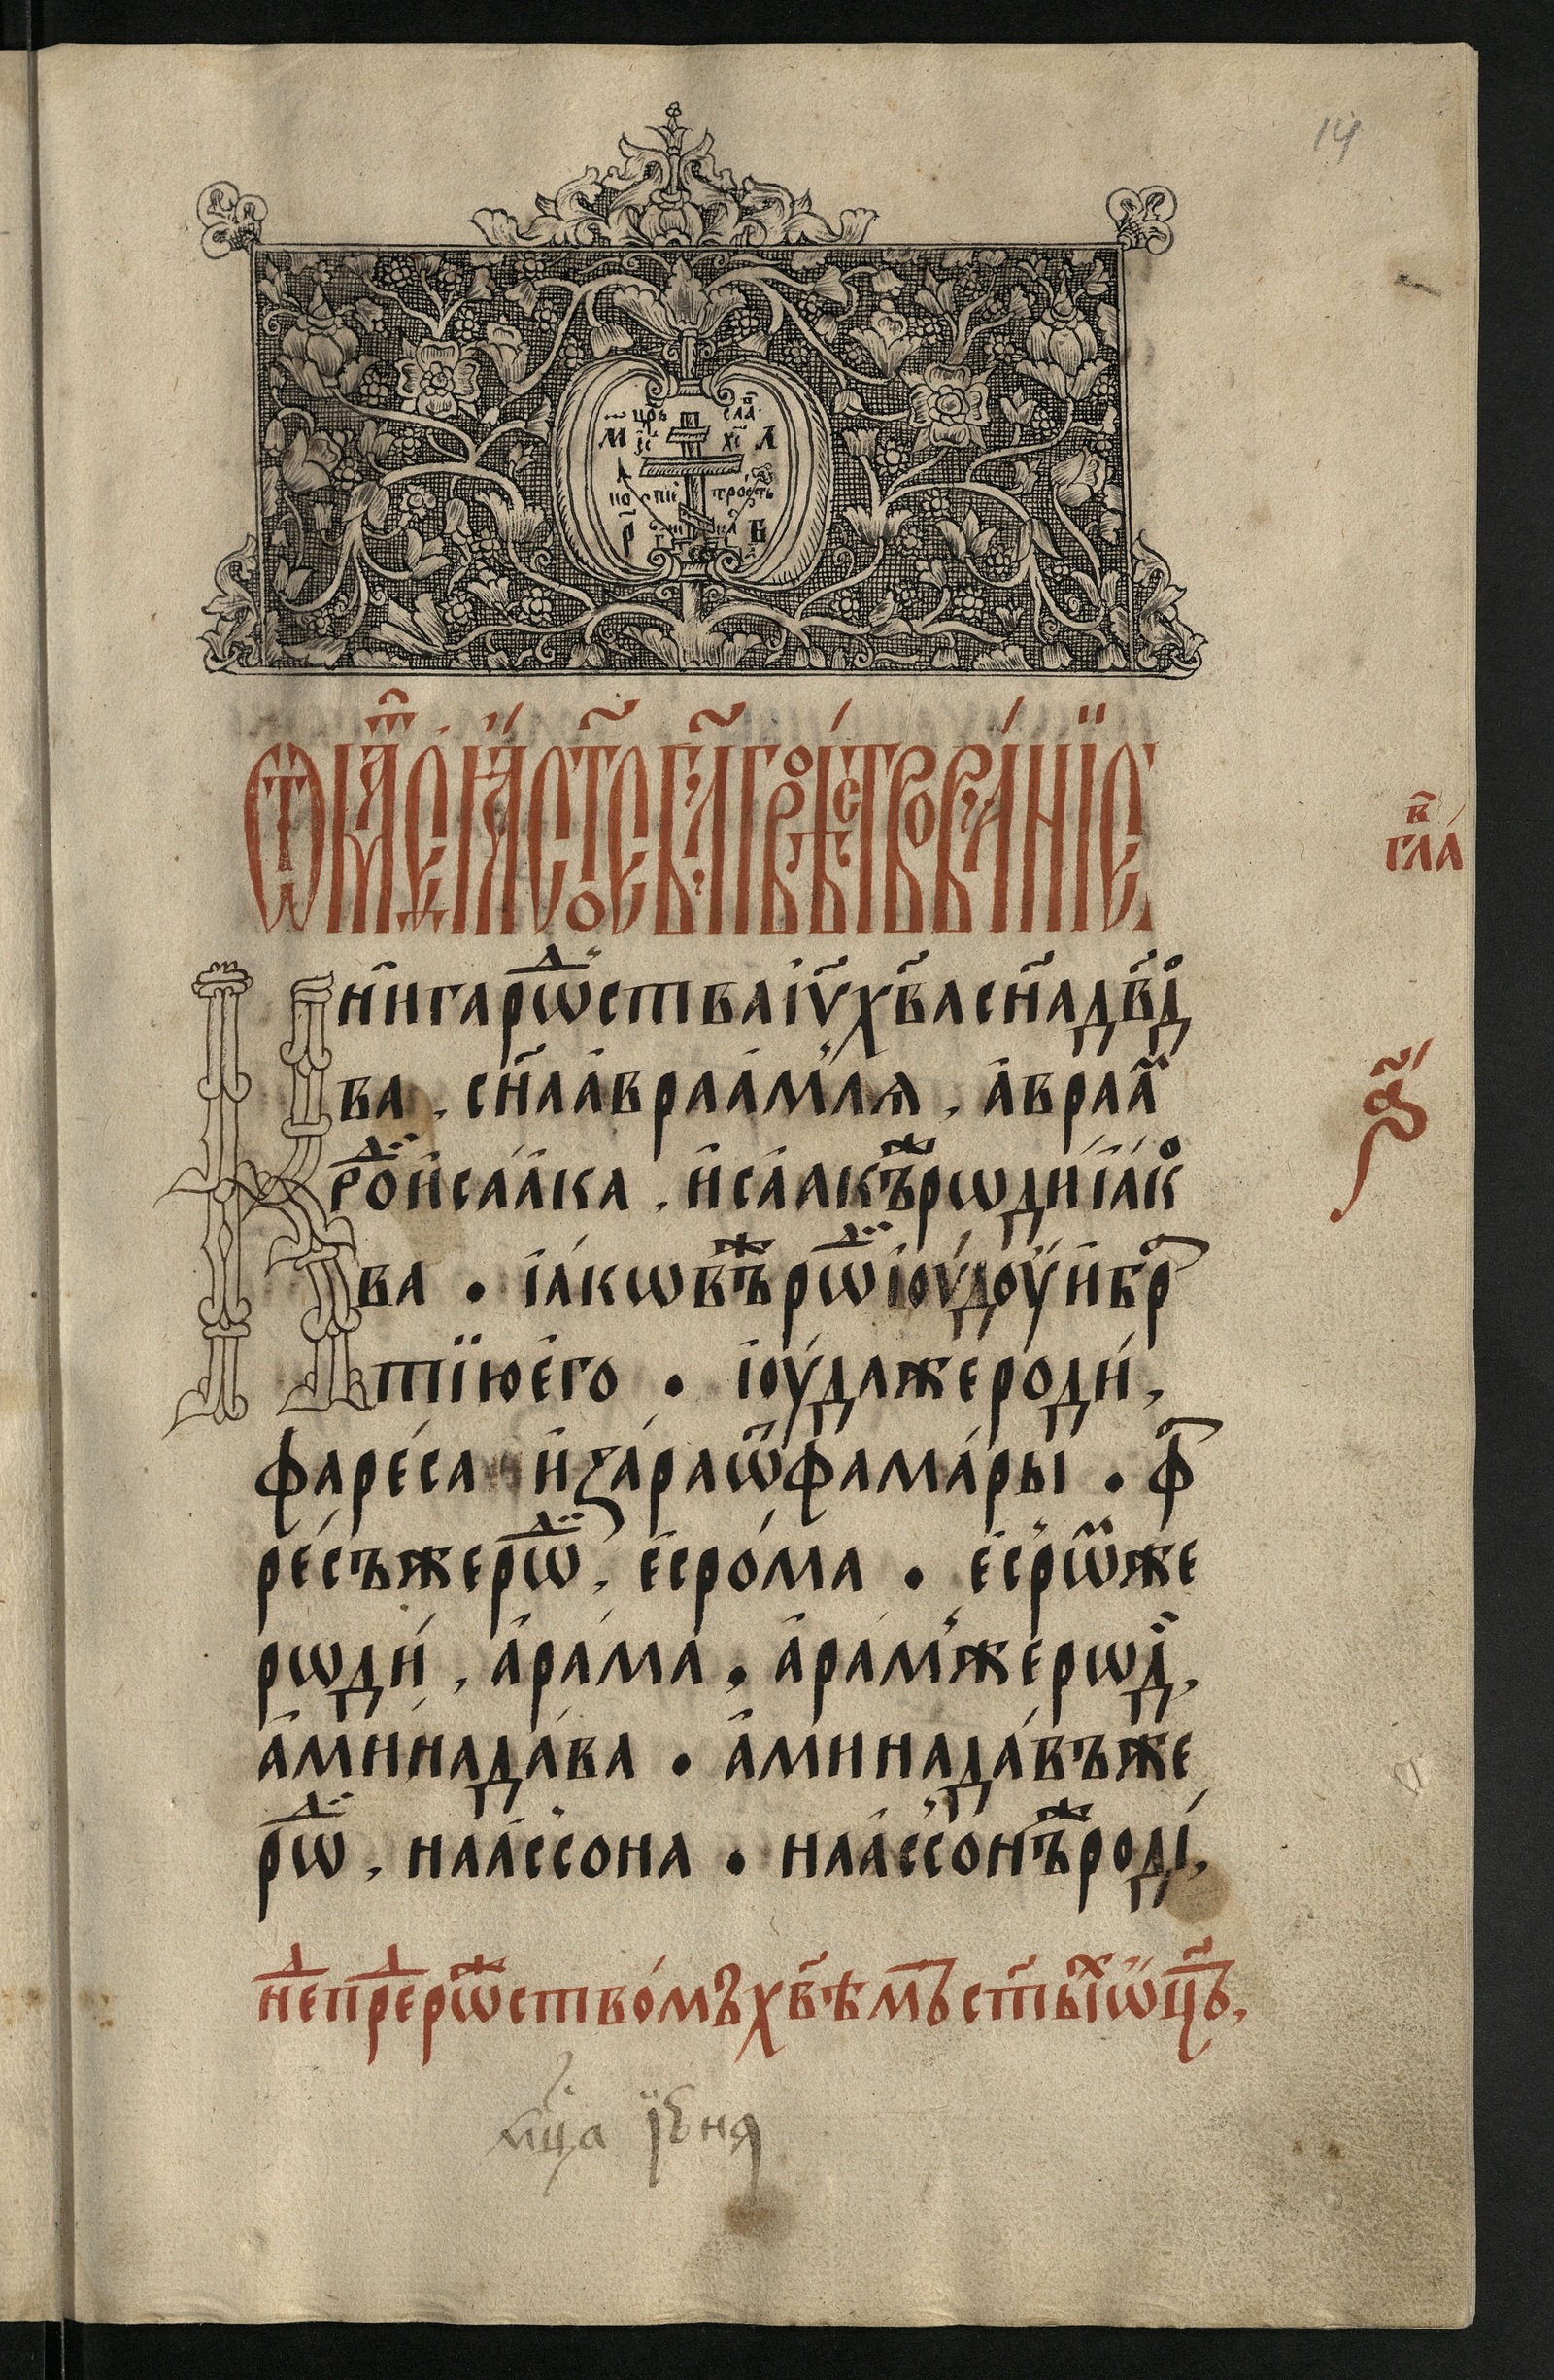 14
црь сла
м іс хс л
ко пие трость
р б
Ѿ маѳеꙗ стое бл҃говѣствованїе
в҃
гла
КНи҃га рѡⷣства і҆у҃ хв҃а сн҃а дв҃дⷪ
за҃
ва , сн҃а а҆враа́млѧ , а҆враа́мⷨ
роⷣ и҆саа́ка , и҆саа́къⷤ рѡди і҆а́кⷪ
ва • і҆а́кѡвъⷤ рѡⷣ і҆ꙋ́дꙋ и҆ бра
тїю е҆го • і҆ꙋ́да же роди́ ,
фаре́са и҆ за́ра ѿ фама́ры • фа
ре́съ же рѡⷣ , е҆сро́ма • е҆срѡ́мⷨ же
рѡди́ , а҆ра́ма • а҆ра́м же рѡдⷤ ,
а҆минада́ва • а҆минада́въ же
рѡⷣ , наассо́на • наассо́нъⷤ роді́ ,
неⷣ преⷣ рѡⷤство́мъ хв҃ѣмъ ст҃ыⷯ ѡ҆ц҃ъ ,
мц҃а і҆ꙋня